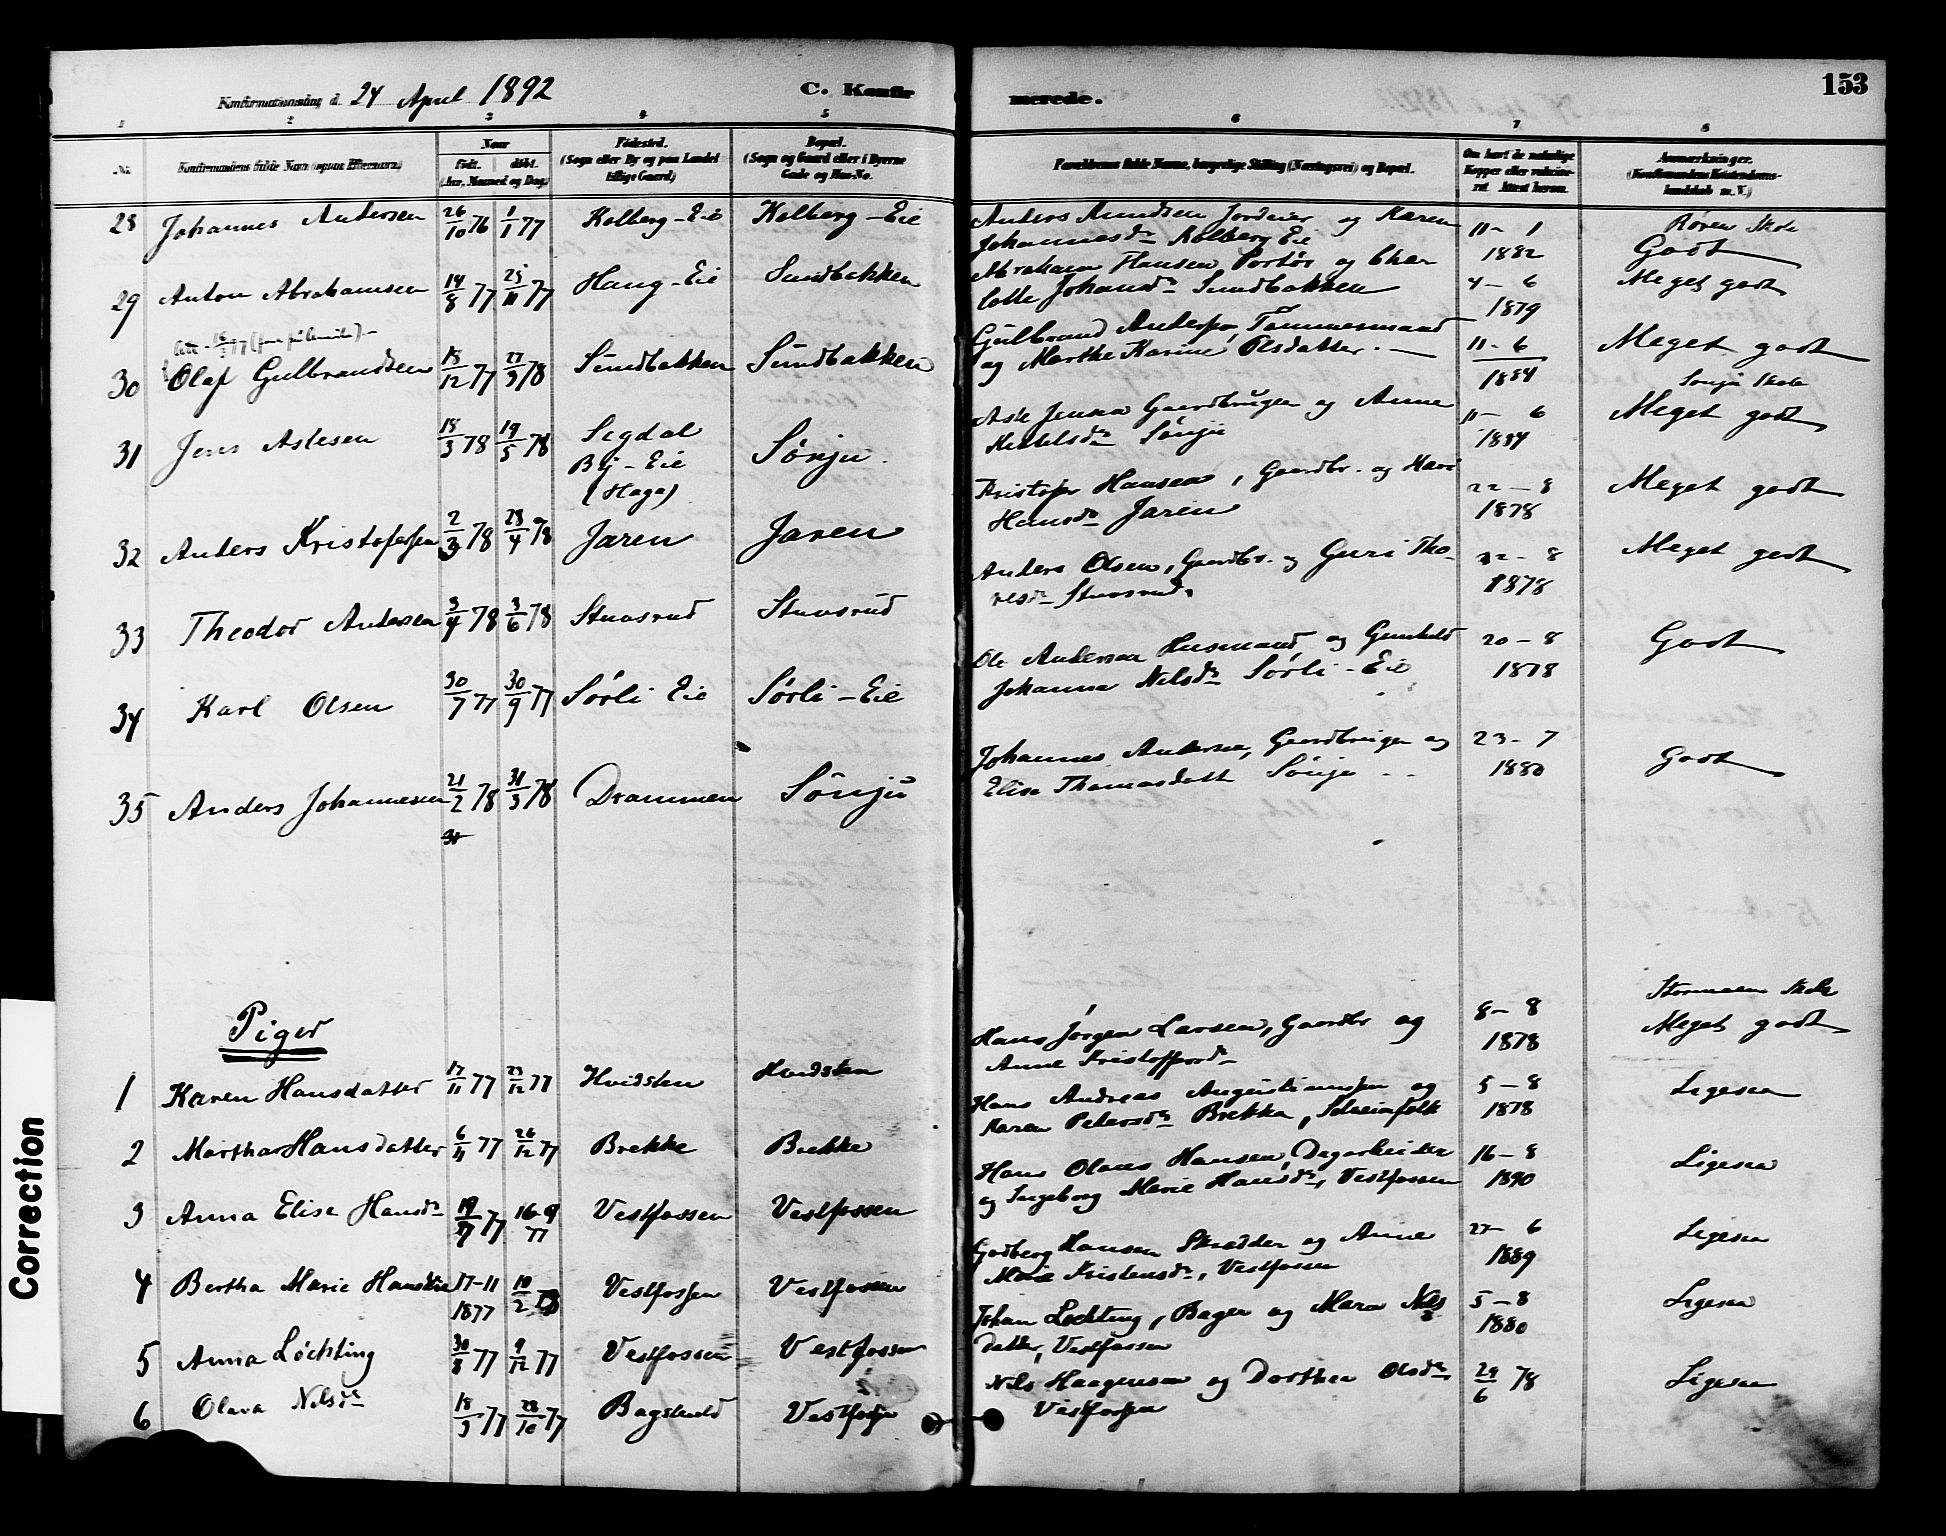 153
Konfirmationsdag d. 24 April 1892
C. Konfirmerede.
1 2 3 4 5 6 7 8
No.
Konfirmandens fulde Navn (ogsaa Efternavn)
Naar
født. døbt.
(Aar, Maaned og Dag.)
Fødested.
(Sogn eller By og paa Landet
tillige Gaard)
Bopæl.
(Sogn og Gaard eller i Byerne
Gade og Hus-No.
Forældrenes fulde Navne, borgerlige Stilling (Næringsvei) og Bopæl.
Om havt de naturlige
Kopper eller vaccine-
ret. Attest herom.
Anmærkninger.
(Konfirmandens Kristendoms-
kundskab m. V.)
28 Johannes Andersen 26/10 76 1/1 77 Kolberg-Eie Kolberg-Eie
Anders Amundsen Jordeier og Karen
Johannesdr Kolberg Eie
11- 1
1882
Røren Skole
Godt
29 Anton Abrahamsen 14/8 77 25/11 77 Haug-Eie Sundbakken
Abraham Hansen Portør og Char
lotte Johansdr Sundbakken
4- 6
1879
Meget godt
30 Olaf Gulbrandsen 18/12 77 27/3 78 Sundbakken Sundbakken
Gulbrand Anderssøn, Tømmermand
og Marthe Karine Olsdatter.
11-6
1884
Meget godt
31 Jens Aslesen 18/3 78 19/5 78 Sigdal
By-Eie
(Haga)
Sønju.
Asle Jensen Gaardbruger og Anne
Sønju
11- 6
1884
Sønju Skole
Meget godt
32 Anders Kristoferssen 2/3 78 28/4 78 Jaren Jaren
Kristofer Hansen, Gaardbr. og Mari
Hansdr Jaren
22-8
1878
Meget godt
33 Theodor Andersen 3/4 78 9/6 78 Stuvsrud Stuvsrud
Anders Olsen, Gaardbr. og Guri Tho-
resdr Stuvsrud.
22-8
1878
Meget godt
34 Karl Olsen 30/7 77 30/9 77 Sørli Eie Sørli-Eie
Ole Andersen Husmand, og Gunhild
Johanne Nilsdr Sørli-Eie
20-8
1878
Godt
35 Anders Johannesen 21/2 78 31/3 78 Drammen Sønju
Johannes Andersen, Gaardbruger og
Elise Thomasdatt Sønju
23- 7
1880
Godt
Piger
1 Karen Hansdatter 17/11 77 23/12 77 Hvidsten Hvidsten
Hans Jørgen Larsen, Gaardbr og
Anne Kristoffersdr
8- 8
1878
Stormoen Skole
Meget godt
2 Martha Hansdatter 6/11 77 26/12 77 Brekke Brekke
Hans Andreas Augustinussen og
Karen Petersdr Brekka, Selveierfolk
5-8
1878
Ligesaa
3 Anna Elise Hansdr 19/7 77 16-9 77 Vestfossen Vestfossen
Hans Olaus Hansen, Dagarbeider
og Ingeborg Marie Hansdr, Vestfossen
16-8
1890
Ligesaa
4 Bertha Marie 17-11 1877 10/2 78 Vestfossen Vestfossen
Godberg Hansen Skrædder og Anne
Marie Kristensdr, Vestfossen
27- 6
1889
Ligesaa
5 Anna Løchting 30/8 77 9/12 77 Vestfossen Vestfossen
Johan Løchting, Bager og Maren Nils
datter, Vestfossen
5-8
1880
Ligesaa
6 Olava Nilsdr 18/9 77 28/10 77 Bagstuld Vestfossen
Nils Haagensen og Dorthea Olsdr
Vestfossen
29/6 78
Ligesaa
Correction